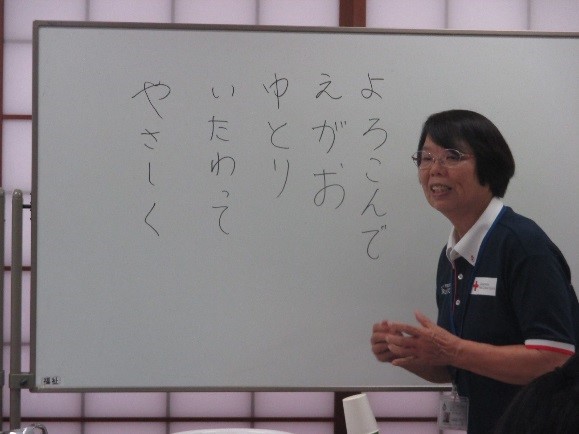 よろこんで
えがお
ゆとり
いたわって
やさしく
福祉